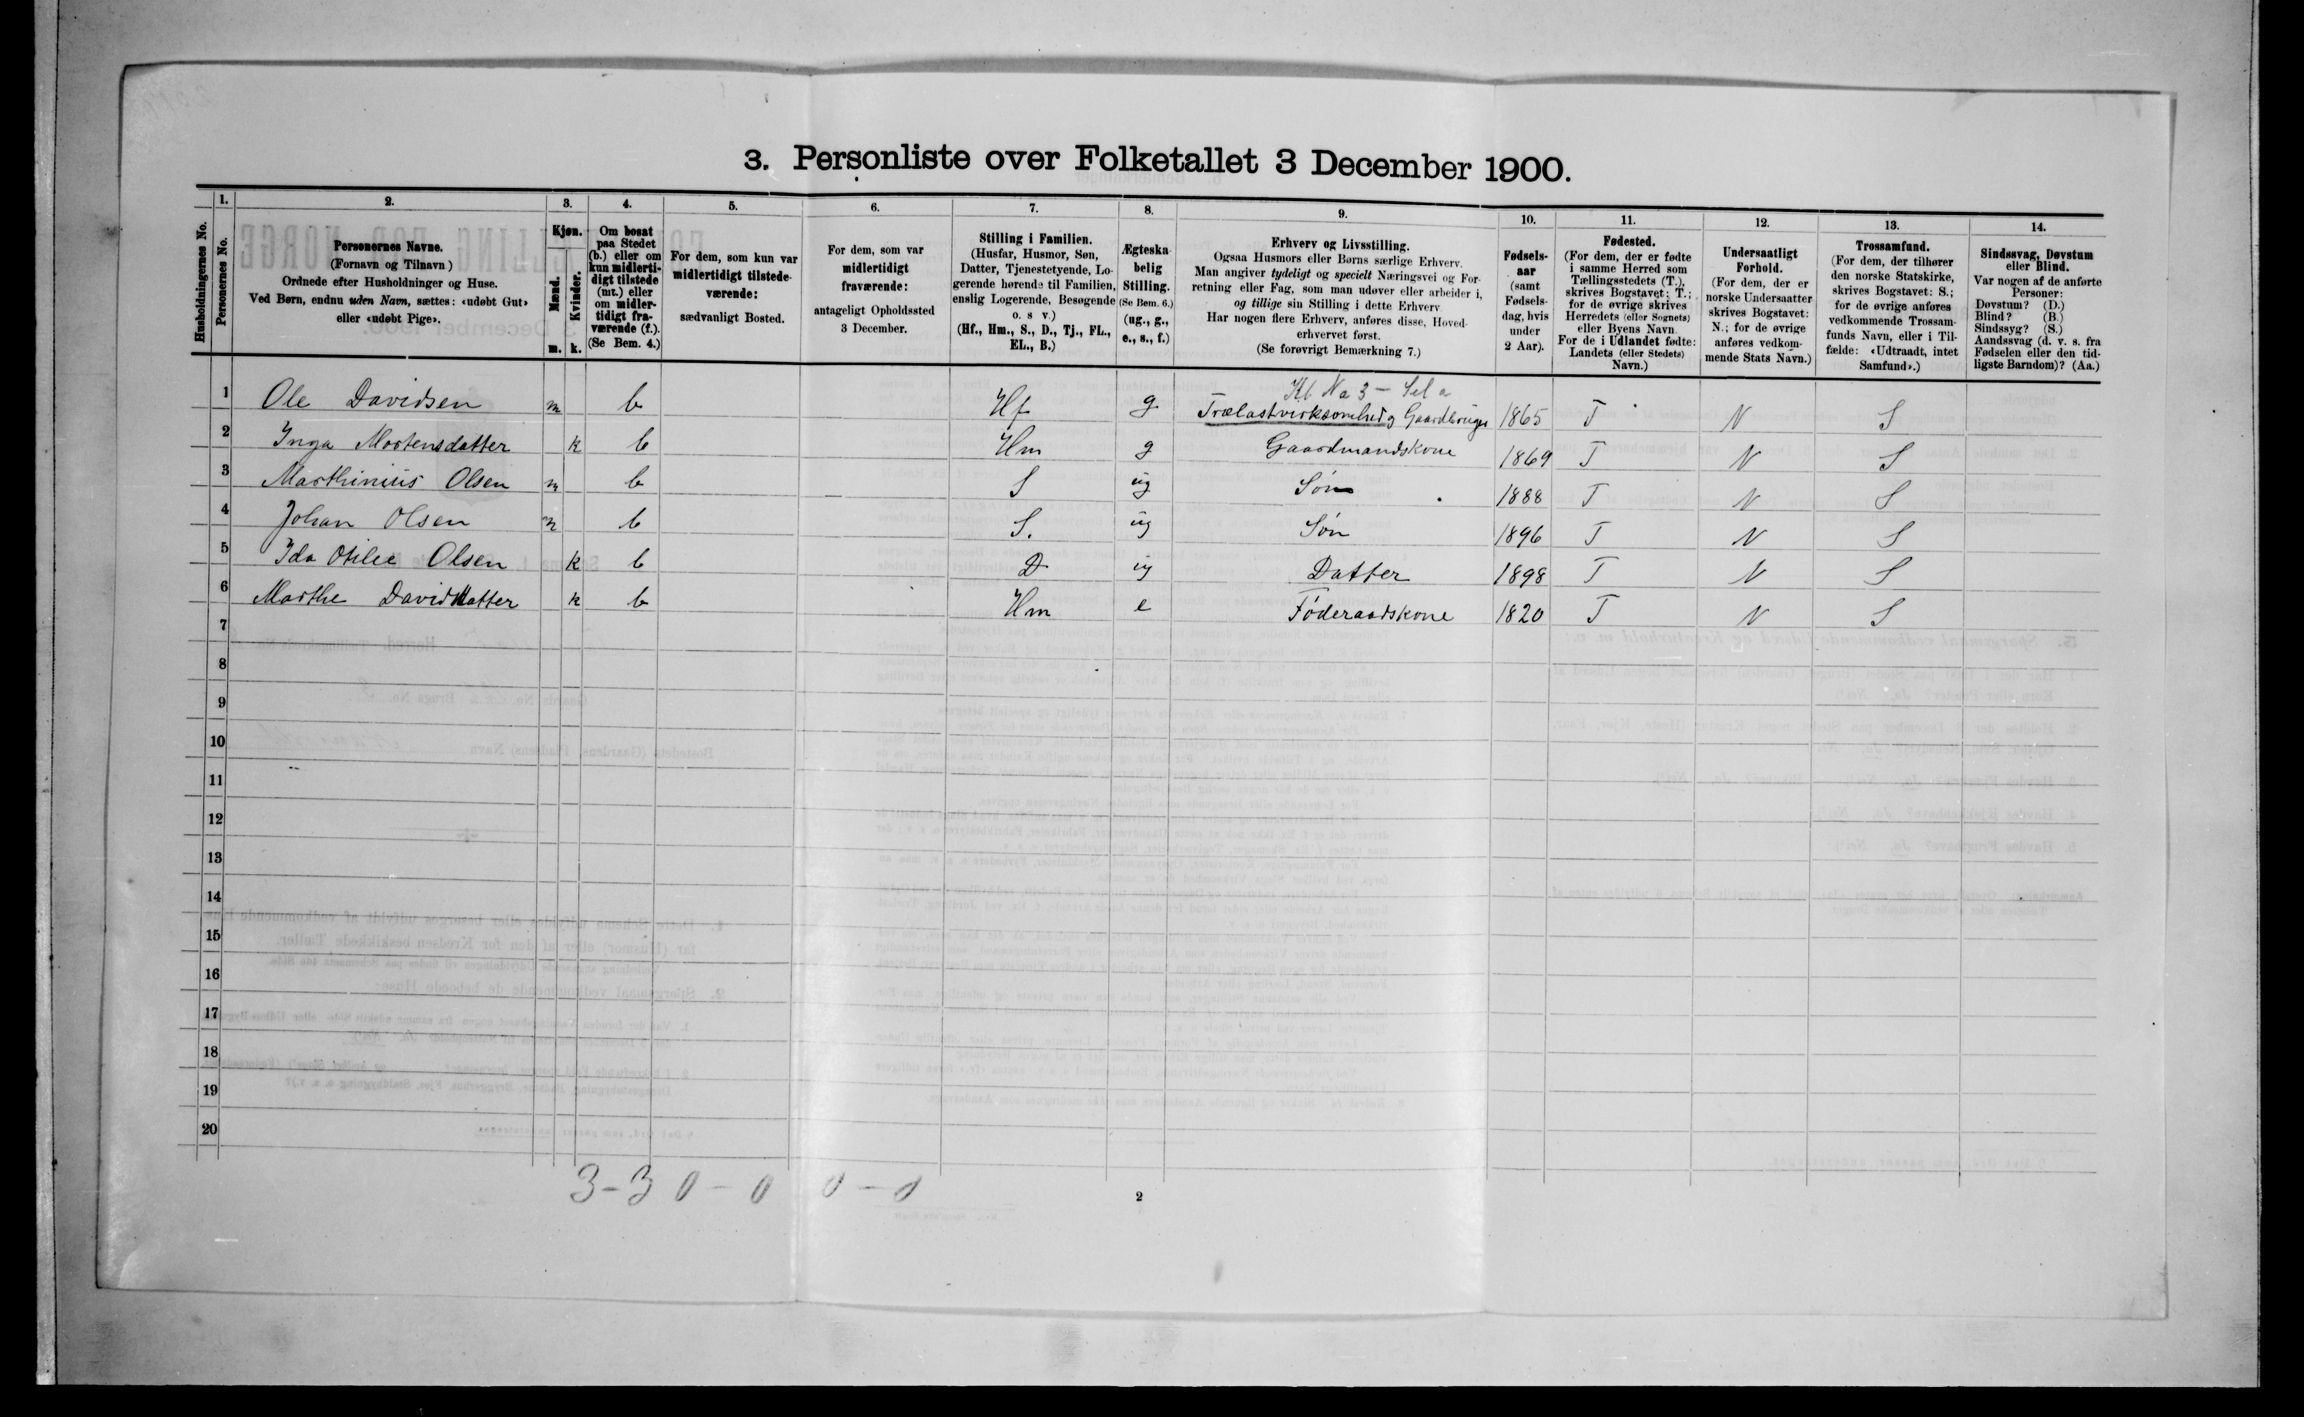 3. Personliste over Folketallet 3 December 1900.
1. 2. 3. 4. 5. 6. 7. 8. 9. 10. 11. 12. 13. 14.
Husholdningernes No.
Personernes No.
Personernes Navne.
(Fornavn og Tilnavn.)
Ordnede efter Husholdninger og Huse.
Ved Børn, endnu uden Navn, sættes: «udøbt Gut»
eller «udøbt Pige».
Kjøn.
Mænd.
Kvinder.
m. k.
Om bosat
paa Stedet
(b.) eller om
kun midlerti-
digt tilstede
(mt.) eller
om midler-
tidigt fra-
værende (f.).
(Se Bem. 4.)
For dem, som kun var
midlertidigt tilstede-
værende:
sædvanligt Bosted.
For dem, som var
midlertidigt
fraværende:
antageligt Opholdssted
3 December.
Stilling i Familien.
(Husfar, Husmor, Søn,
Datter, Tjenestetyende, Lo-
gerende hørende til Familien,
enslig Logerende, Besøgende
o. s v.)
(Hf., Hm., S., D., Tj., FL.,
EL., B.)
Ægteska-
belig
Stilling.
(Se Bem. 6.)
(ug., g.,
e., s., f.)
Erhverv og Livsstilling.
Ogsaa Husmors eller Børns særlige Erhverv.
Man angiver tydeligt og specielt Næringsvei og For-
retning eller Fag, som man udøver eller arbeider i,
og tillige sin Stilling i dette Erhverv.
Har nogen flere Erhverv, anføres disse, Hoved-
erhvervet først.
(Se forøvrigt Bemærkning 7.)
Fødsels-
aar
(samt
Fødsels-
dag, hvis
under
2 Aar).
Fødested.
(For dem, der er fødte
i samme Herred som
Tællingsstedets (T.),
skrives Bogstavet: T.;
for de øvrige skrives
Herredets (eller Sognets)
eller Byens Navn.
For de i Udlandet fødte:
Landets (eller Stedets)
Navn.)
Undersaatligt
Forhold.
(For dem, der er
norske Undersaatter
skrives Bogstavet:
N.; for de øvrige
anføres vedkom-
mende Stats Navn.)
Trossamfund.
(For dem, der tilhører
den norske Statskirke,
skrives Bogstavet: S.;
for de øvrige anføres
vedkommende Trossam-
funds Navn, eller i Til-
fælde: «Udtraadt, intet
Samfund».)
Sindssvag, Døvstum
eller Blind.
Var nogen af de anførte
Personer:
Døvstum? (D.)
Blind? (B.)
Sindssyg? (S.)
Aandssvag (d. v. s. fra
Fødselen eller den tid-
ligste Barndom)? (Aa.)
1 Ole Davidsen m b Hf g Trælastvirksomhed og Gaardbruger 1865 T N S
2 Inga Mortensdatter k b Hm g Gaardmandskone 1869 T N S
3 Marthinius Olsen m b S ug Søn 1888 T N S
4 Johan Olsen m b S. ug Søn 1896 T N S
5 Ida Otilie Olsen k b D ug Datter 1898 T N S
6 Marthe Davidsdatter k b Hm e Føderaadskone 1820 T N S
7
8
9
10
11
12
13
14
15
16
17
18
19
20
3-3 0-0 0-0
2